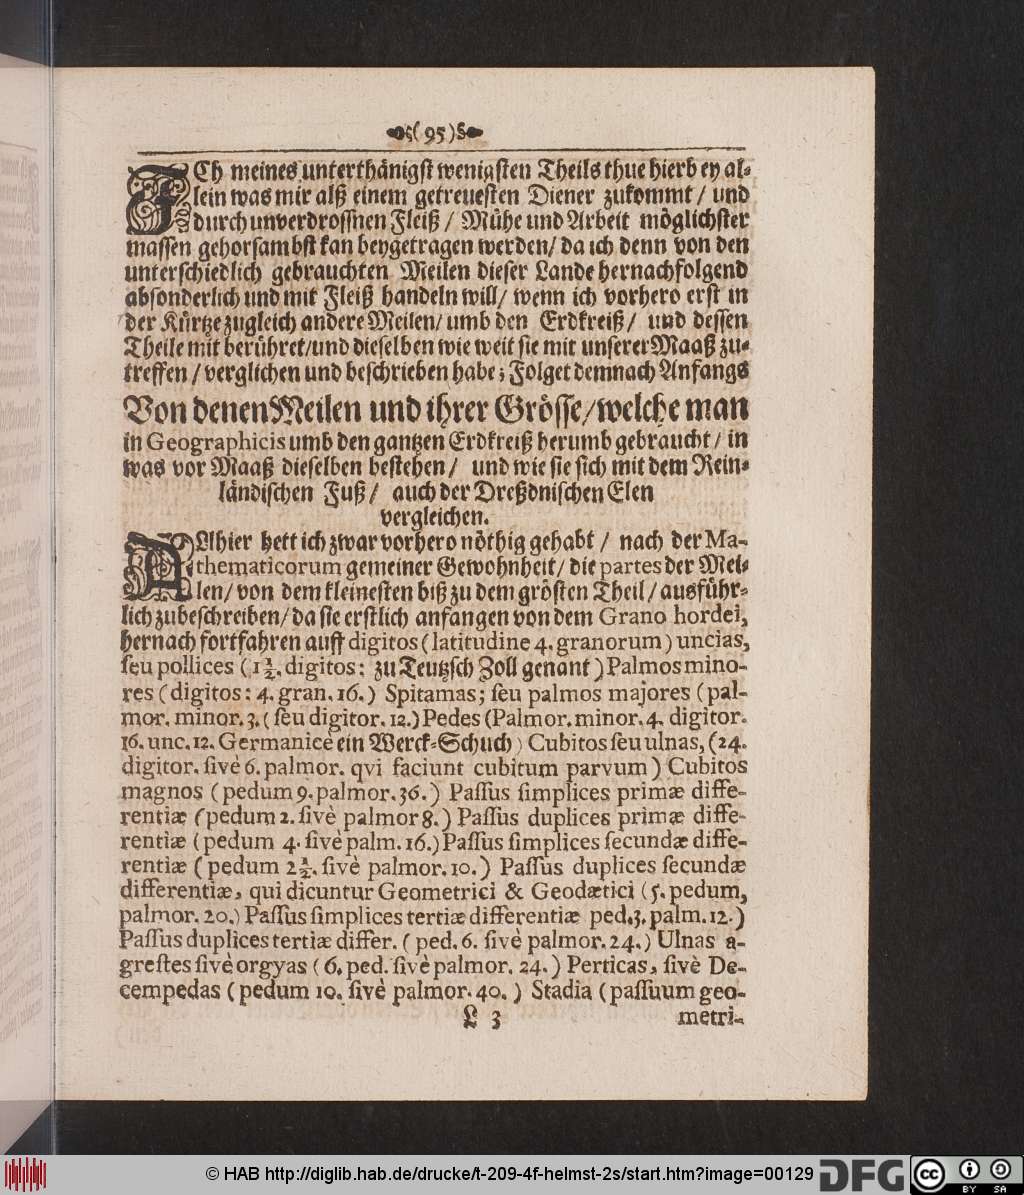 (95)
ICh meines unterthänigst wenigsten Theils thue hierbey al-
lein was mir alß einem getreuesten Diener zukommt / und
durch unverdrossnen Fleiß / Mühe und Arbeit möglichster
massen gehorsambst kan beygetragen werden/ da ich denn von den
unterschiedlich gebrauchten Meilen dieser Lande hernachfolgend
absonderlich und mit Fleiß handeln will/ wenn ich vorhero erst in
der Kürtze zugleich andere Meilen/ umb den Erdkreiß / und dessen
Theile mit berühret/und dieselben wie weit sie mit unserer Maaß zu-
treffen / verglichen und beschrieben habe; Folget demnach Anfangs
Von denen Meilen und ihrer Grösse/welche man
in Geographicis umb den gantzen Erdkreiß herumb gebraucht / in
was vor Maaß dieselben bestehen / und wie sie sich mit dem Rein-
ländischen Fuß / auch der Dreßdnischen Elen
vergleichen.
ALhier hett ich zwar vorhero nöthig gehabt / nach der Ma-
thematicorum gemeiner Gewohnheit/ die partes der Mei-
len/ von dem kleinesten biß zu dem grösten Theil / ausführ-
lich zubeschreiben/ da sie erstlich anfangen von dem Grano hordei,
hernach fortfahren auff digitos (latitudine 4. granorum) uncias,
seu pollices (1 1/2. digitos: zu Teutzsch Zoll genant) Palmos mino-
res (digitos: 4. gran. 16.) Spitamas; seu palmos majores (pal-
mor. minor. 3. (seu digitor. 12.) Pedes (Palmor. minor. 4. digitor.
16. unc. 12. Germanicè ein Werck-Schuch) Cubitos seu ulnas, (24.
digitor. sivè 6. palmor. qvi faciunt cubitum parvum) Cubitos
magnos (pedum 9. palmor. 36.) Passus simplices primæ diffe-
rentiæ (pedum 2. sivè palmor 8.) Passus duplices primæ diffe-
rentiæ (pedum 4. sivè palm. 16.) Passus simplices secundæ diffe-
rentiæ (pedum 2 1/2. sivè palmor. 10.) Passus duplices secundæ
differentiæ, qui dicuntur Geometrici & Geodætici (5. pedum,
palmor. 20.) Passus simplices tertiæ differentiæ ped. 3. palm. 12.)
Passus duplices tertiæ differ. (ped. 6. sivè palmor. 24.) Ulnas a-
grestes sivè orgyas (6. ped. sivè palmor. 24.) Perticas, sivè De-
cempedas (pedum 10. sivè palmor. 40.) Stadia (passuum geo-
L 3 metri-
© HAB http://diglib.hab.de/drucke/t-209-4f-helmst-2s/start.htm?image=00129
DFG
cc BY SA